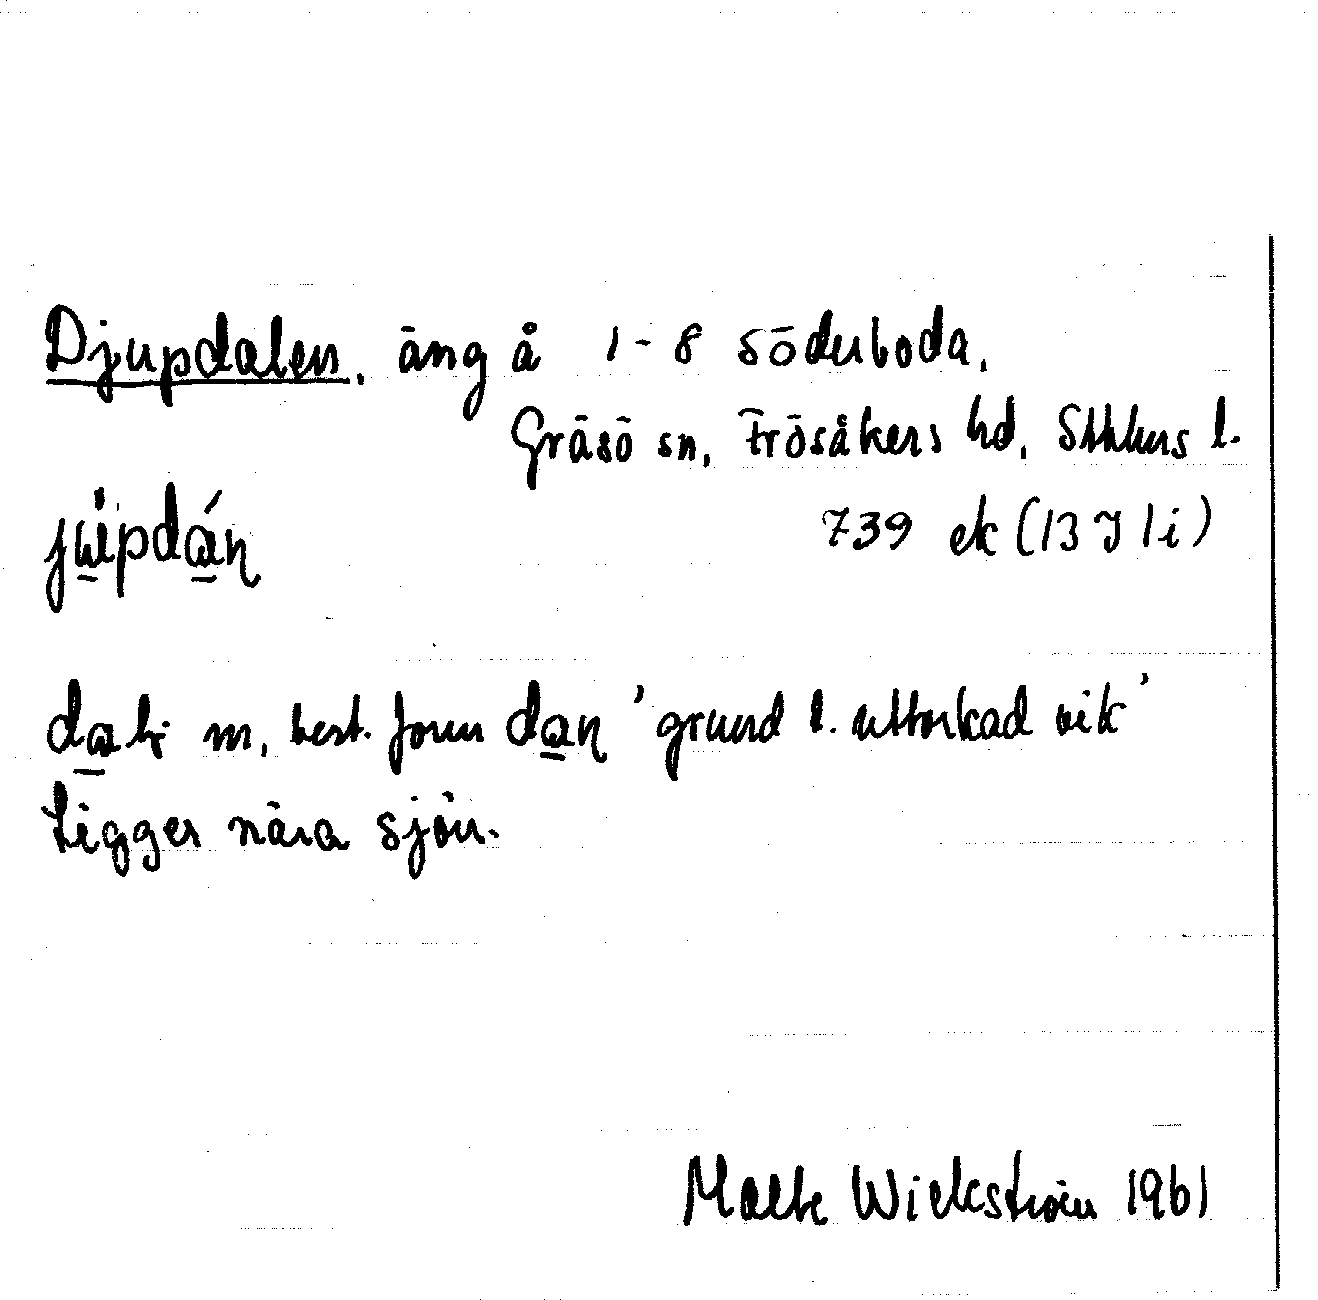 Djupdalen, äng å 1-8 Söderboda,
Gräsö sn, Frösåkers hd, Sthlms l.
739 ek (13 J 1 i)
m, best. form dan 'grund l. uttorkad vik'
Ligger nära sjön.
Malte Wickström 1961